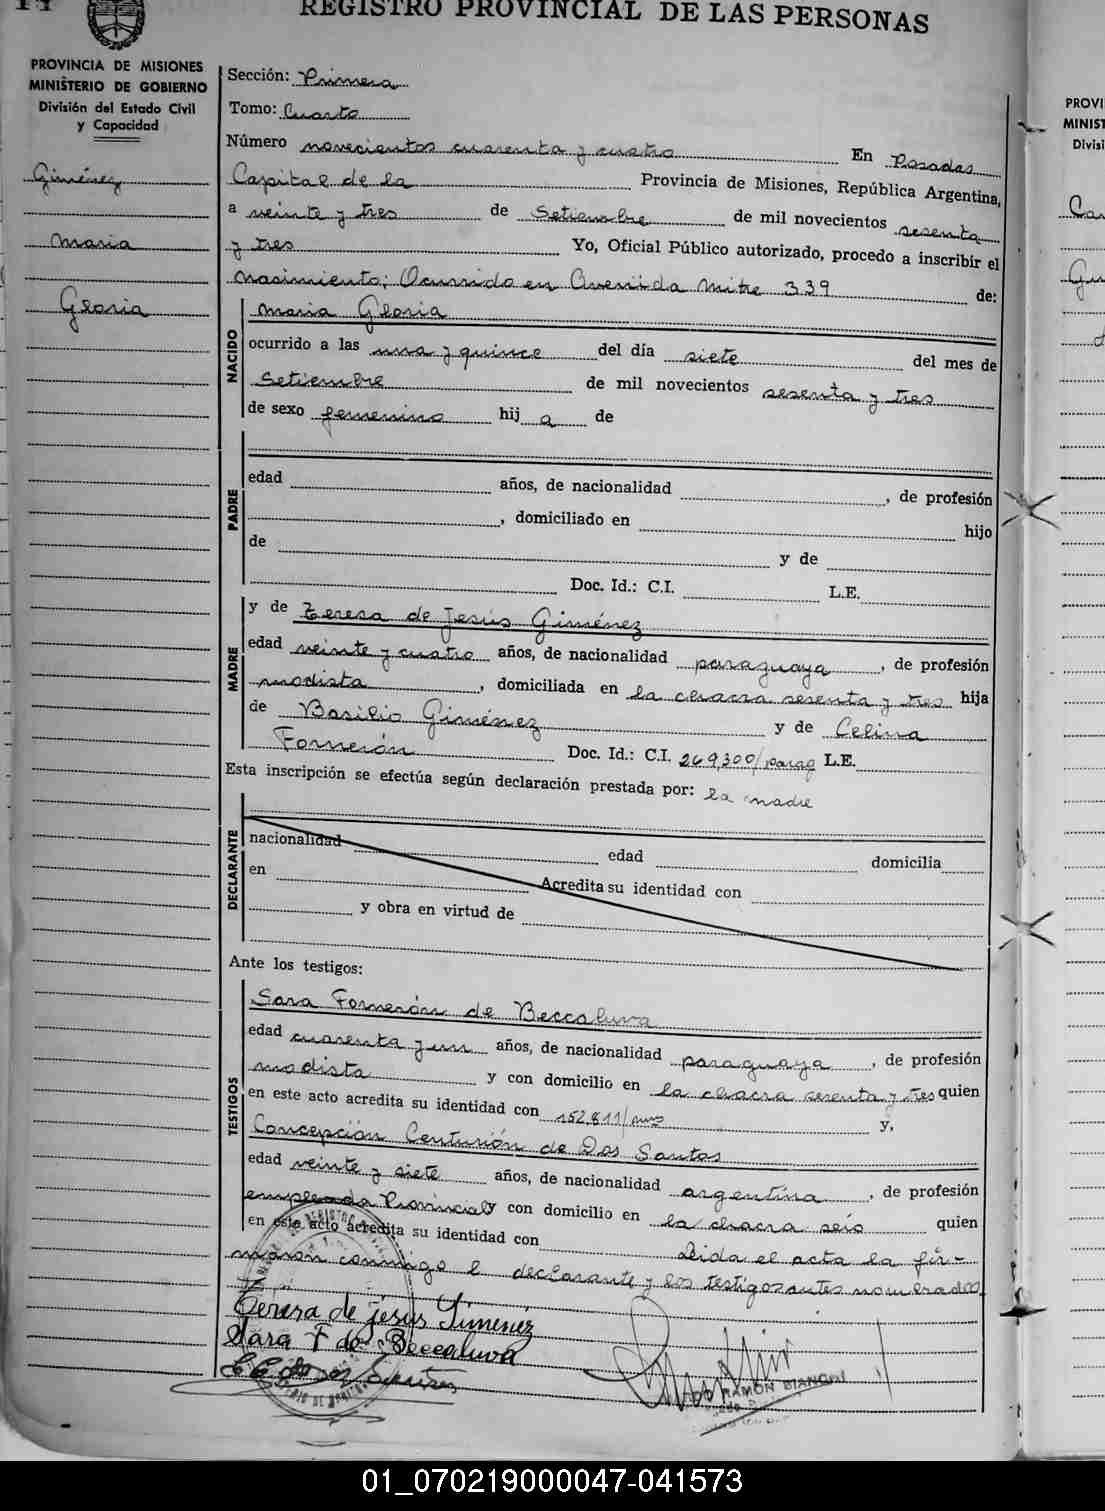 REGISTRO PROVINCIAL DE LAS PERSONAS
PROVINCIA DE MISIONES
MINISTERIO DE GOBIERNO
División del Estado Civil
y Capacidad
Giménez
Maria
Gloria
Sección: Primera
Tomo: Cuarto
Número novecientos cuarenta y cuatro En Posadas
Capital de la Provincia de Misiones, República Argentina,
a veinte y tres de Setiembre de mil novecientos sesenta
y tres Yo, Oficial Público autorizado, procedo a inscribir el
nasimiento; Ocurrido en Avenida Mitre 339 de:
NACIDO
Maria Gloria
ocurrido a las una y quince del día siete del mes de
Setiembre de mil novecientos sesenta y tres
de sexo femenino hij a de
PADRE
edad años, de nacionalidad , de profesión
, domiciliado en hijo
de y de
Doc. Id.: C.I. L.E.
MADRE
y de Teresa de Jesús Giménez
edad veinte y cuatro años, de nacionalidad paraguaya , de profesión
modista , domiciliada en la chacra sesenta y tres hija
de Basilio Giménez y de Celina
Fornerón Doc. Id.: C.I. 269,300/parag L.E.
Esta inscripción se efectúa según declaración prestada por: la madre
DECLARANTE
nacionalidad edad domicilia
en Acredita su identidad con
y obra en virtud de
Ante los testigos:
TESTIGOS
Sara Fornerón de Beccaluva
edad cuarenta y un años, de nacionalidad paraguaya , de profesión
modista y con domicilio en la chacra sesenta y tres quien
en este acto acredita su identidad con 152.811/ y,
Concepción Centurión de Dos Santos
edad veinte y siete años, de nacionalidad argentina , de profesión
empleada Provincial y con domicilio en la chacra seis quien
en este acto acredita su identidad con Leida el acta la fir-
maron conmigo l declarante y los testigos antes nombrados
Teresa de jesús Jimenez
Sara F de Beccaluva
RAMON BIANCHI
PROVI
MINIST
Divisi
01_070219000047-041573